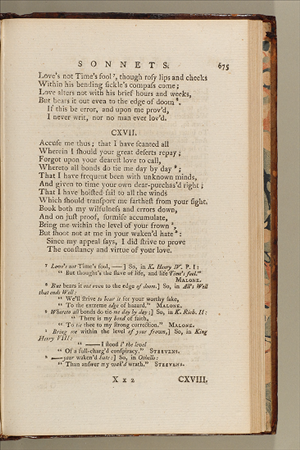 SONNETS. 675
Love's not Time's fool ⁷, though rosy lips and cheeks
Within his bending sickle's compass come;
Love alters not with his brief hours and weeks,
But bears it out even to the edge of doom ⁸.
If this be error, and upon me prov'd,
I never writ, nor no man ever lov'd.
CXVII.
Accuse me thus; that I have scanted all
Wherein I should your great deserts repay;
Forgot upon your dearest love to call,
Whereto all bonds do tie me day by day ⁹;
That I have frequent been with unknown minds,
And given to time your own dear-purchas'd right;
That I have hoisted sail to all the winds
Which should transport me farthest from your sight.
Book both my wilfulness and errors down,
And on just proof, surmise accumulate,
Bring me within the level of your frown ¹,
But shoot not at me in your waken'd hate ²:
Since my appeal says, I did strive to prove
The constancy and virtue of your love.
⁷ Love's not Time's fool, —] So, in K. Henry IV. P. I:
" But thought's the slave of life, and life Time's fool."
MALONE.
⁸ But bears it out even to the edge of doom.] So, in All's Well
that ends Well:
" We'll strive to bear it for your worthy sake,
" To the extreme edge of hazard." MALONE.
⁹ Whereto all bonds do tie me day by day;] So, in K. Rich. II:
" There is my bond of faith,
" To tie thee to my strong correction." MALONE.
¹ Bring me within the level of your frown,] So, in King
Henry VIII:
" — I stood i' the level
" Of a full-charg'd conspiracy." STEEVENS.
² — your waken'd hate:] So, in Othello:
" Than answer my wak'd wrath." STEEVENS.
X x 2 CXVIII,